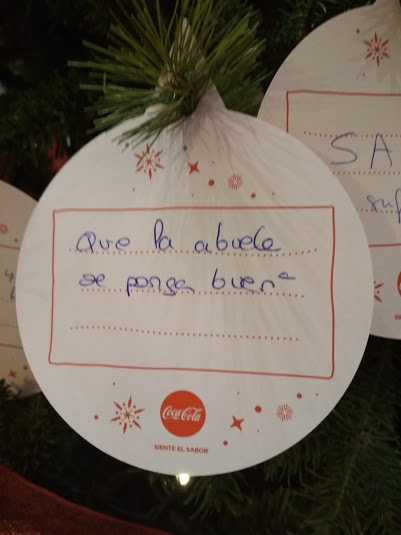 Que la abuela
se ponga buena
Coca-Cola
SIENTE EL SABOR
SA